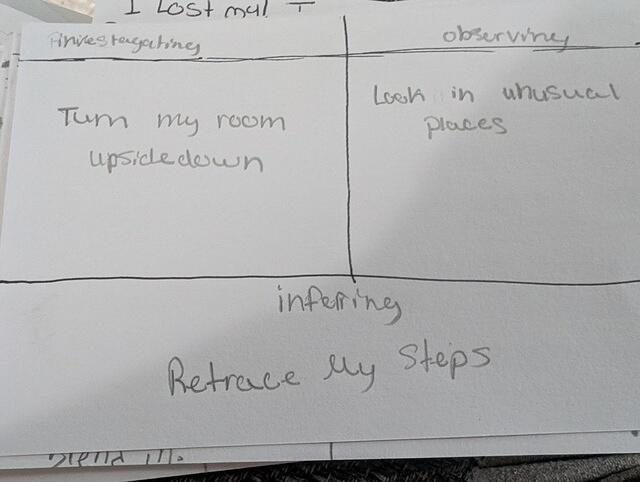 I Lost my
investagating
observing
Turn my room
upsidedown
Look in unusual
places
inferring
Retrace My Steps
Blend in.